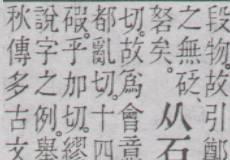 段物。故引鄭
之無砭、
砮矣。
从石
切。故爲會意
都亂切。十四
碬。乎加切。繆
說字之例。舉
秋傳多古文